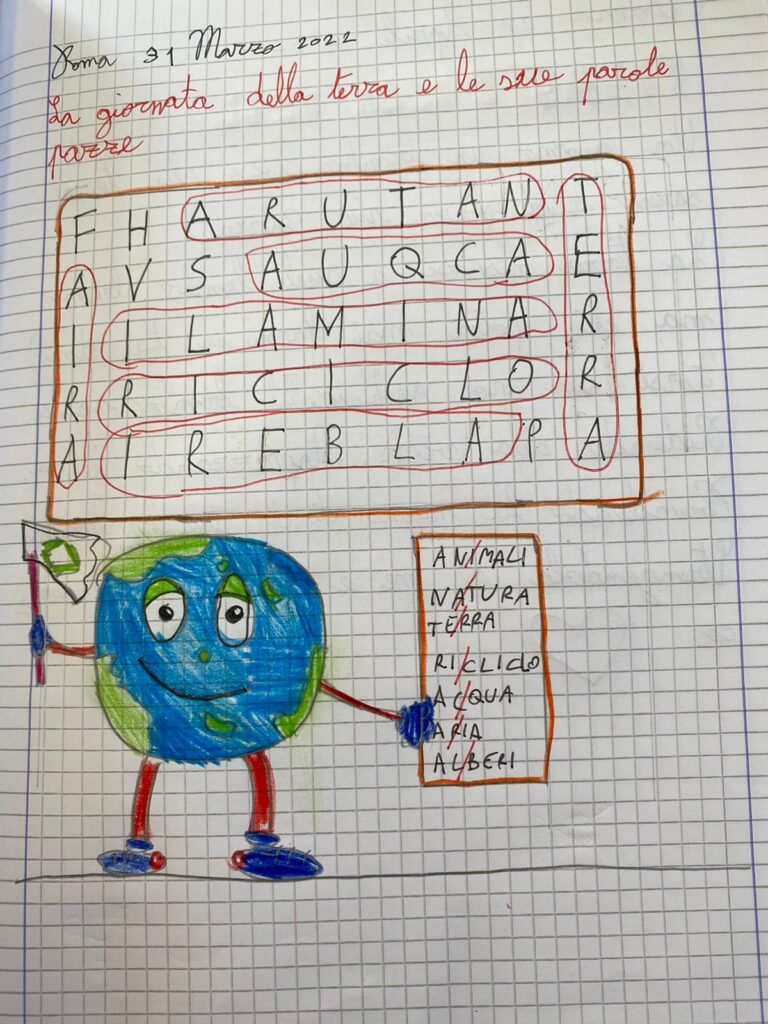 Roma 31 Marzo 2022
La giornata della terra e le sue parole
pazze
F H A R U T A N T
A V S A U Q C A E
I I L A M I N A R
R R I C I C L O R
A I R E B L A P A
ANIMALI
NATURA
TERRA
RICLICLO
ACQUA
ARIA
ALBERI